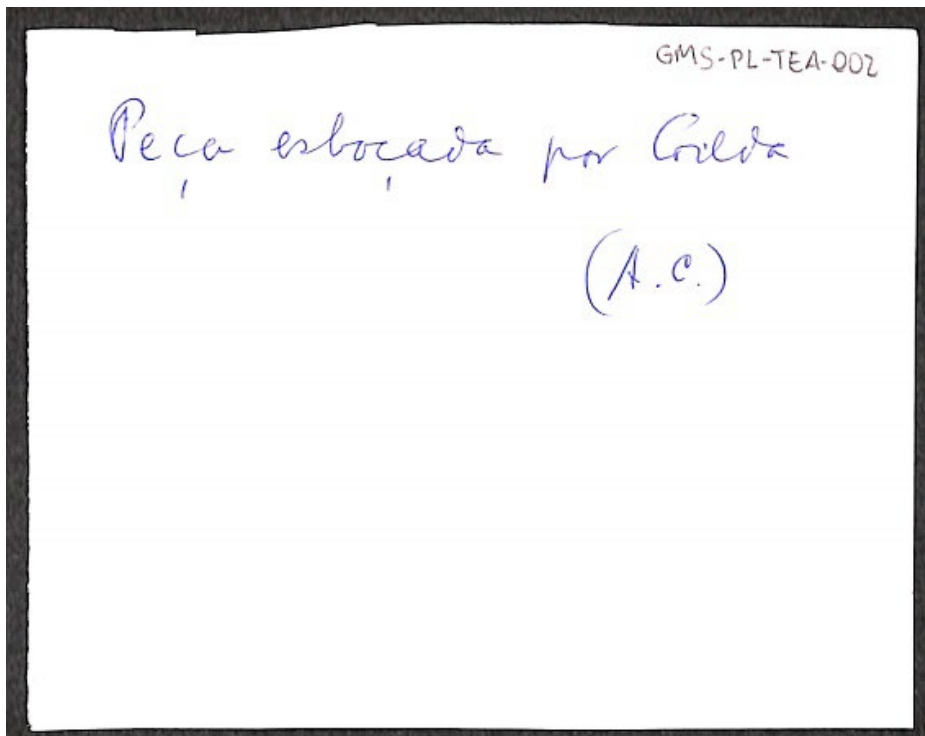 GMS-PL-TEA-002
Peça esboçada por Gilda
(A.C.)